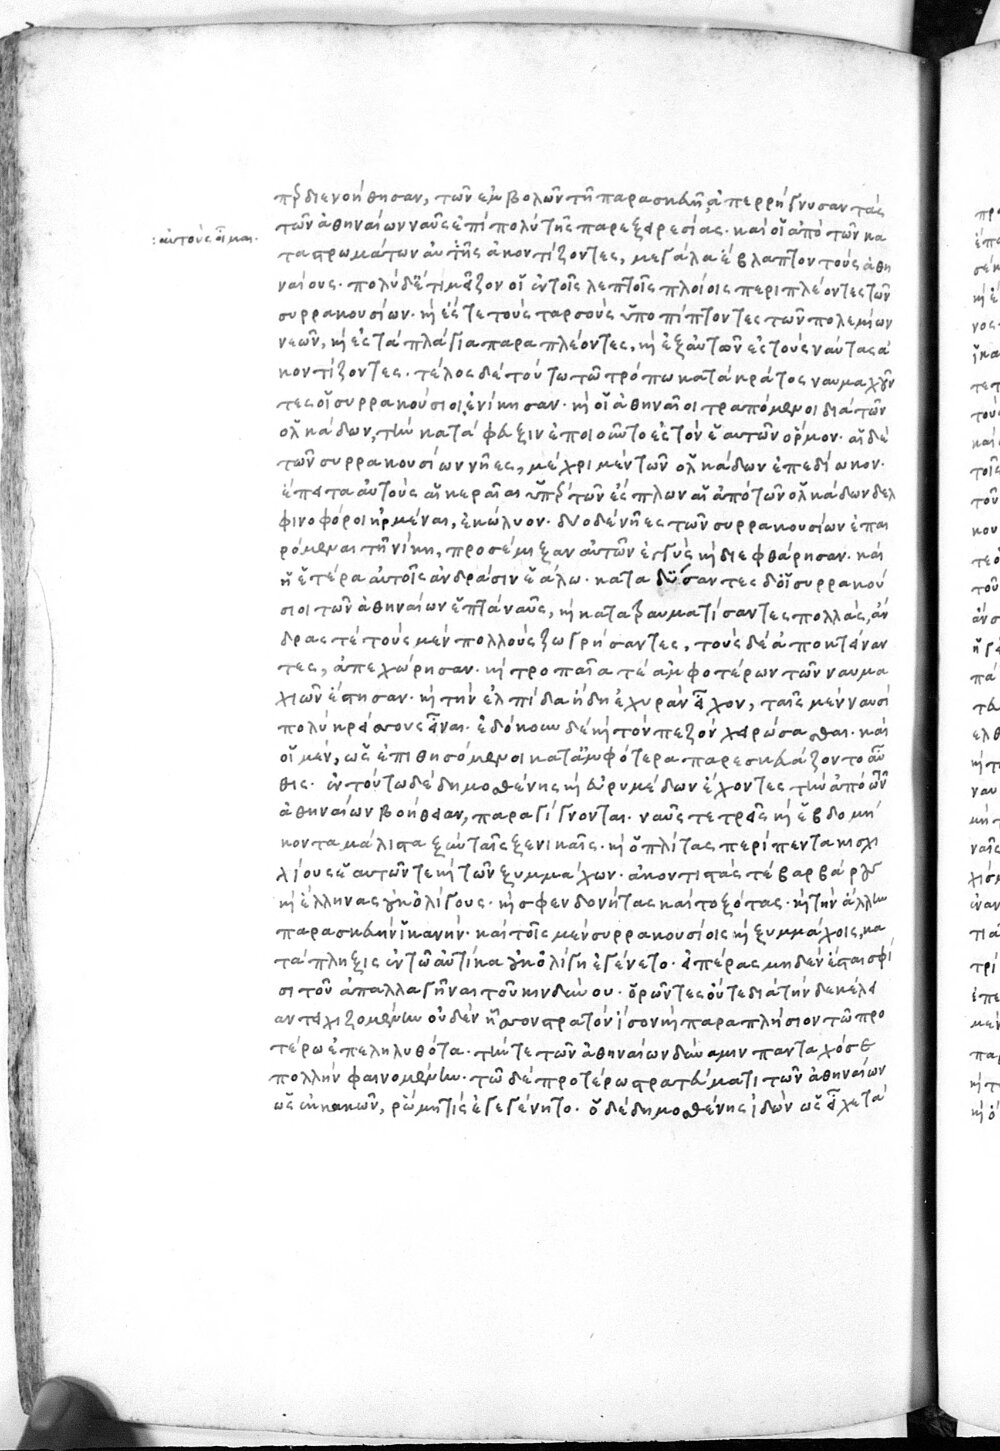 περ διενοήθησαν, τῶν ἐμβολῶν τῇ παρασκευῇ, ἀπερρήγνυσαν τὰς
τῶν ἀθηναίων ναῦς ἐπὶ πολὺ τῆς παρεξειρεσίας· καὶ οἱ ἀπὸ τῶν κα
:αὐτοὺς οἶμαι.
ταστρωμάτων αὐτῆς ἀκοντίζοντες, μεγάλα ἔβλαπτον τοὺς ἀθη
ναίους· πολὺ δ' ἔτι μεῖζον οἱ ἐν τοῖς λεπτοῖς πλοίοις περιπλέοντες τῶν
συρρακουσίων· καὶ ἔς τε τοὺς ταρσοὺς ὑποπίπτοντες τῶν πολεμίων
νεῶν, καὶ ἐς τὰ πλάγια παραπλέοντες, καὶ ἐξ αὐτῶν ἐς τοὺς ναύτας ἀ
κοντίζοντες· τέλος δὲ τούτω τῶ τρόπω κατὰ κράτος ναυμαχοῦν
τες οἱ συρρακούσιοι ἐνίκησαν· καὶ οἱ ἀθηναῖοι τραπόμενοι διὰ τῶν
ὁλκάδων, τὴν κατάφευξιν ἐποιοῦντο ἐς τὸν ἑαυτῶν ὅρμον· αἱ δὲ
τῶν συρρακουσίων νῆες, μέχρι μὲν τῶν ὁλκάδων ἐπεδίωκον·
ἔπειτα αὐτοὺς αἱ κεραῖαι ὑπὲρ τῶν ἔσπλων αἱ ἀπὸ τῶν ὁλκάδων δελ
φινοφόροι ἠρμέναι, ἐκώλυον· δύο δὲ νῆες τῶν συρρακουσίων ἐπαι
ρόμεναι τῇ νίκῃ, προσέμιξαν αὐτῶν ἐγγὺς καὶ διεφθάρησαν· καὶ
ἡ ἑτέρα αὐτοῖς ἀνδράσιν ἑάλω· καταδύσαντες δ' οἱ συρρακού
σιοι τῶν ἀθηναίων ἑπτὰ ναῦς, καὶ κατατραυματίσαντες πολλὰς, ἄν
δρας τὲ τοὺς μὲν πολλοὺς ζωγρήσαντες, τοὺς δὲ ἀποκτείναν
τες, ἀπεχώρησαν· καὶ τροπαῖα τὲ ἀμφοτέρων τῶν ναυμα
χιῶν ἔστησαν· καὶ τὴν ἐλπίδα ἤδη ἐχυρὰν εἶχον, ταῖς μὲν ναυσὶ
πολὺ κρείσσους εἶναι· ἐδόκουν δὲ καὶ τὸν πεζὸν χειρώσασθαι· καὶ
οἱ μὲν, ὡς ἐπιθησόμενοι κατ' ἀμφότερα παρεσκευάζοντο αὖ
θις· ἐν τούτω δὲ δημοσθένης καὶ εὐρυμέδων ἔχοντες τὴν ἀπὸ τῶν
ἀθηναίων βοήθειαν, παραγίγνονται· ναῦς τε τρεῖς καὶ ἑβδομή
κοντα μάλιστα ξὺν ταῖς ξενικαῖς· καὶ ὁπλίτας περὶ πεντακισχι
λίους ἑαυτῶν τε καὶ τῶν ξυμμάχων· ἀκοντιστάς τὲ βαρβάρους
καὶ ἕλληνας οὐκ ὀλίγους· καὶ σφενδονήτας καὶ τοξότας· καὶ τὴν ἄλλην
παρασκευὴν ἱκανήν· καὶ τοῖς μὲν συρρακουσίοις καὶ ξυμμάχοις, κα
τάπληξις ἐν τῶ αὐτίκα οὐκ ὀλίγη ἐγένετο· εἰ πέρας μηδὲν ἔσται σφί
σι τοῦ ἀπαλλαγῆναι τοῦ κινδύνου· ὁρῶντες οὔτε διὰ τὴν δεκέλει
αν τειχιζομένην οὐδὲν ἧσσον στρατὸν ἴσον καὶ παραπλήσιον τῶ προ
τέρω ἐπεληλυθότα· τήν τε τῶν ἀθηναίων δύναμιν πανταχόσε
πολλὴν φαινομένην· τῶ δὲ προτέρω στρατεύματι τῶν ἀθηναίων
ὡς ἐκ κακῶν, ῥώμη τὶς ἐγεγένητο· ὁ δὲ δημοσθένης ἰδὼν ὡς εἶχε τὰ